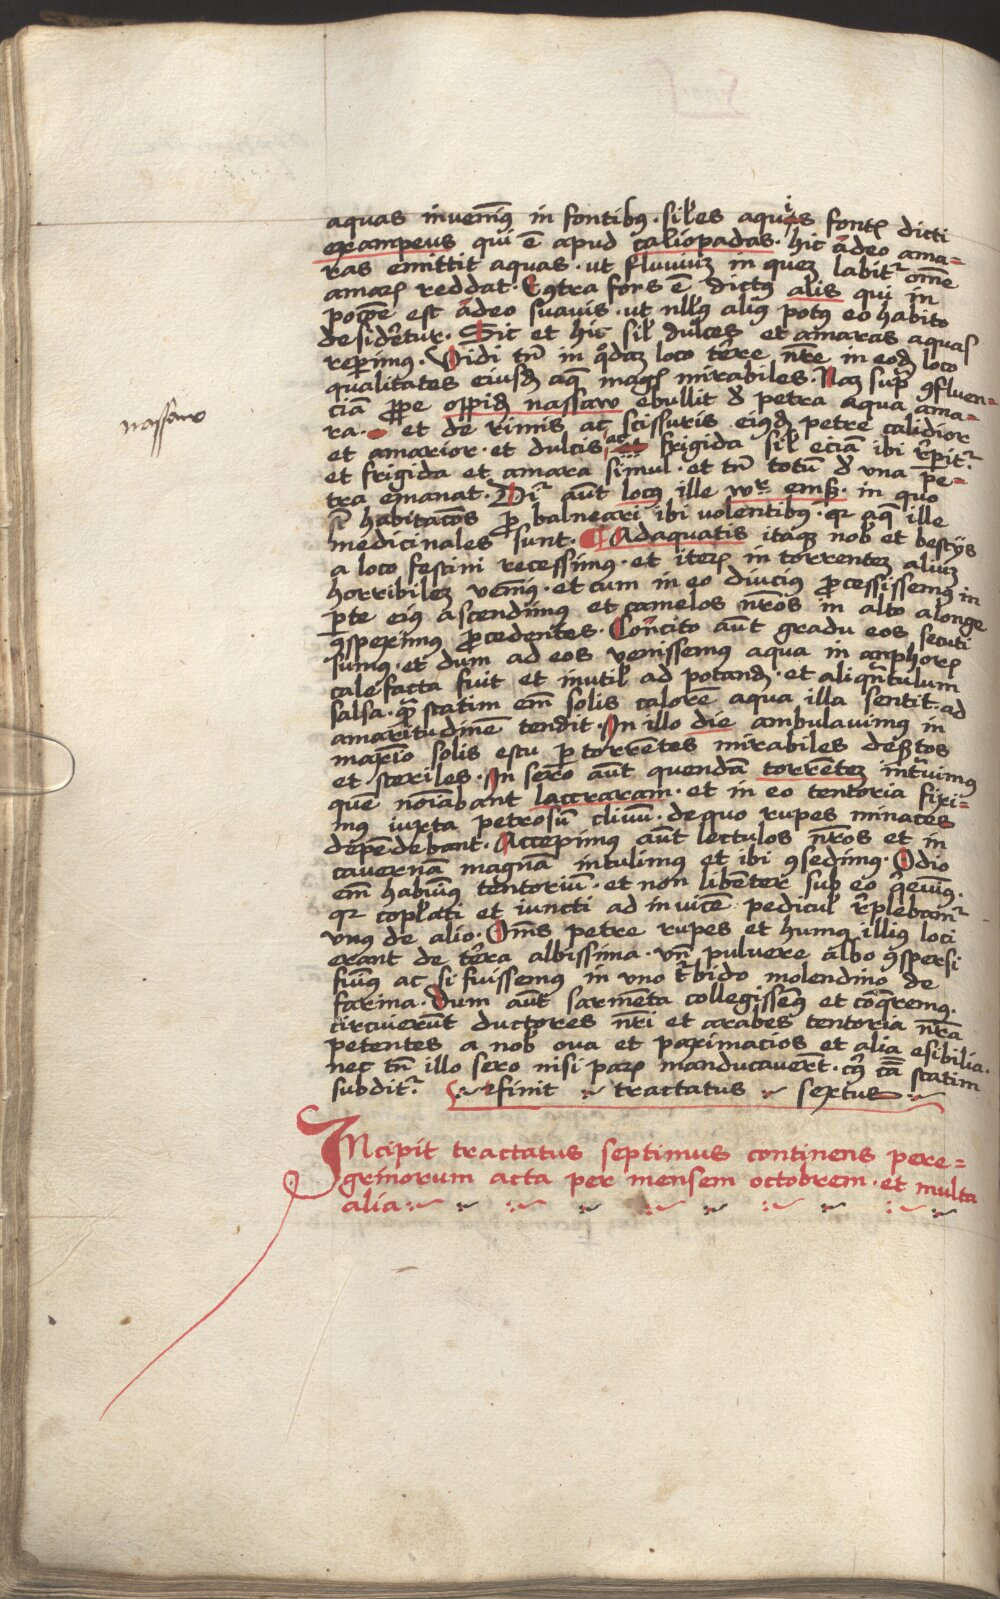 aquas invenim⁹ in fontib⁹ · siles aquis fontꝭ dicti
exampeus qui ē apud caliopadas · hic ādeo ama=
ras emittit aquas · ut fluviuꝫ in queꝫ labit᷑ om̄e
amarꝫ reddat · Cōtra fons ē dict⁹ alis qui in
poc̄oe est ādeo suavis · ut nll⁹ ali⁹ pot⁹ eo habito
desidēretur · Sic et hic sil dulces et amaras aquas
reperimus · Vidi tn̄ in q̊daꝫ loco terre nr̄e in eodꝫ loco
qualitates eiusdꝫ aq̄ magꝭ mirabiles · Naꝫ supꝰ ꝯfluen=
ciā ꝓpe oppidꝫ nassaw ebullit d' petra aqua ama=
ra · et de rimis ac scissuris eiusdꝫ petre calidior
nassaw
et amarior · et dulcis ac frigida sil eciā ibi rep̄it᷑
et frigida et amara simul · et tn̄ totū d' una pe=
tra emanat · Di᷑ aūt loc⁹ ille wᷣ emß · in quo
sī habitac̄oes ꝓ balneari ibi volentib⁹ · qꝛ aq̄ ille
medicinales sunt · Adaquatis itaqꝫ nob̄ et bestijs
a loco festini recessimus · et iterꝫ in torrenteꝫ aliuꝫ
horribileꝫ venim⁹ · et cum in eo diuci⁹ ꝓcessissemus in
ꝑte ei⁹ ascendimus et camelos nr̄os in alto alonge
ꝯspeximus ꝓcedentes · Concito aūt gradu eos secuti
sumus · et dum ad eos venissemus aqua in amphorꝭ
calefacta fuit et inutil ad potandꝫ · et aliqn̄tulum
salsa · qꝛ statim em̄ solis calorē aqua illa sentit · ad
amaritudinē tendit · In illo die ambulavimus in
maximo solis estu ꝑ torrentes mirabiles desertos
et steriles · In sero aūt quendā torrenteꝫ intravimus
quē noīabant laccraram · et in eo tentoria fixi=
mus iuxta petrosū clivū · de quo rupes minaces
dependebant · Accepimus aūt lectulos nr̄os et in
cavernā magnā intulimus et ibi ꝯsedimus · Odio
em̄ habuim⁹ tentoriū · et non libenter sub eo q̄evim⁹ ·
qꝛ coplati et iuncti ad invicē pedicul replebam᷑
vn⁹ de alio · Oms petre rupes et hum⁹ illi⁹ loci
erant de terra albissima · vn̄ pulvere albo ꝯspersi
fuim⁹ ac si fuissemus in vno turbido molendino de
farina · Dum aūt sarmenta collegissem⁹ et coq̄remus ·
circuierunt ductores nr̄i et arabes tentoria nr̄a
petentes a nob̄ ova et paximacios et alia esibilia ·
nec tn̄ illo sero nisi parꝫ manducaverūt · cui⁹ cā statim
subdit᷑ · Explicit tractatus sextus
Incipit tractatus septimus continens pere=
grinorum acta per mensem octobrem · et multa
alia